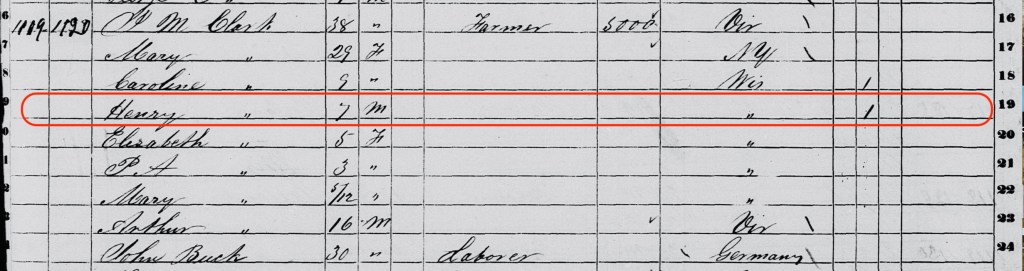 1119 1120 P M Clark 38 " Farmer 5000 Vir \ 16
Mary " 29 F NY \ 17
Caroline " 9 " Wis 1 18
Henry " 7 M " 1 19
Elizabeth " 5 F " 20
P A " 3 " " 21
Mary " 5/12 " " 22
Arthur " 16 M Vir \ 23
John Buck 30 " Laborer \ Germany \ 24